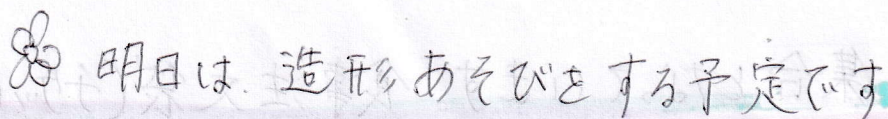 明日は、造形あそびをする予定です